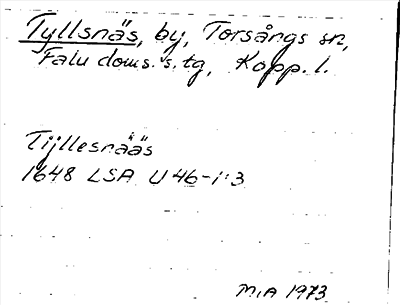 Tyllsnäs, by, Torsångs sn,
Falu doms. s. tg, Kopp. l.
Tijllesnääs
1648 LSA U 46-1:3
M.A 1973